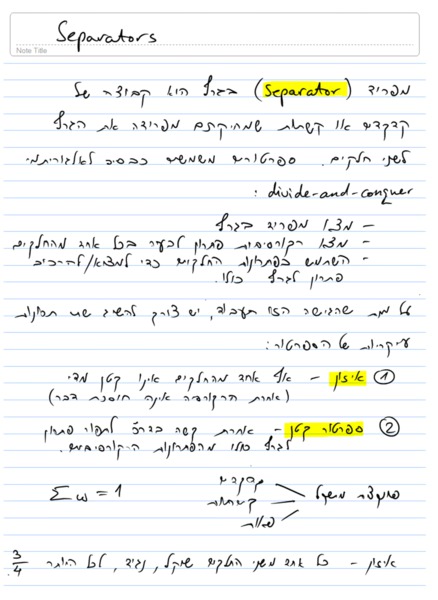 Separators
Note Title
מפריד (Separator) בגרף הוא קבוצה של
קדקדים או קשתות שמחיקתם מפרידה את הגרף
לשני חלקים. ספרטורים משמשים כבסיס לאלגוריתמי
divide-and-conquer :
- מצא מפריד בגרף
- מצא רקורסיבית פתרון לבעיה בכל אחד מהחלקים
- השתמש בפתרונות החלקים כדי למצוא/להרכיב
פתרון לגרף כולו.
על מנת שהגישה הזו תעבוד, יש צורך להשיג שתי תכונות
עיקריות של הספרטור:
① איזון - אף אחד מהחלקים אינו קטן מדי
(אחרת הרקורסיה אינה חוסכת דבר)
② ספרטור קטן - אחרת קשה בד"כ לתפור פתרון
לגרף כולו מהפתרונות הרקורסיביים.
קדקדים
Σw = 1 קשתות משקל
פאות
איזון - כל אחד משני החלקים שוקל, נגיד, לכל היותר 3/4.